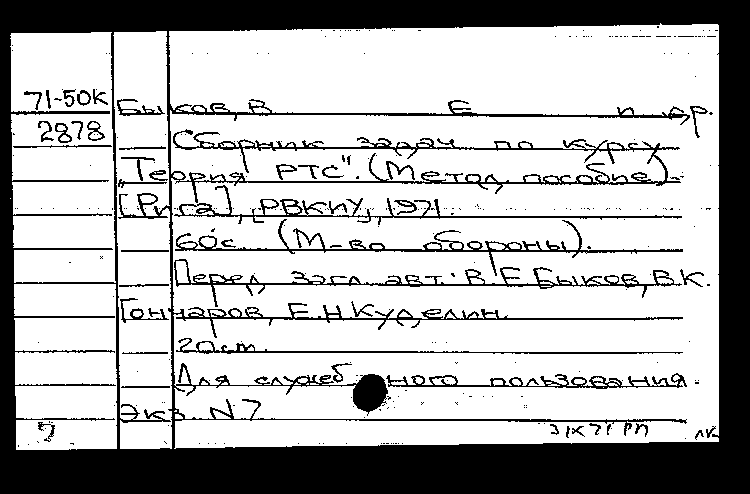 71-50к Быков, В Е и др.
2878 Сборник задач по курсу
„Теория РТС". (Метод, пособие).
[Рига], [РВКИУ], 1971.
60с. (М-во обороны).
Перед загл. авт.: В.Е Быков, В.К.
Гончаров, Е.Н Куделин.
20 см.
Для служебного пользования.
Экз. N 7
3 IX 71 РП